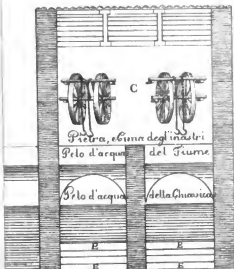 C
Pietra, e cima degl'inastri
Pelo d'acqua del Fiume
Pelo d'acqua della Chiavica
E E
E E